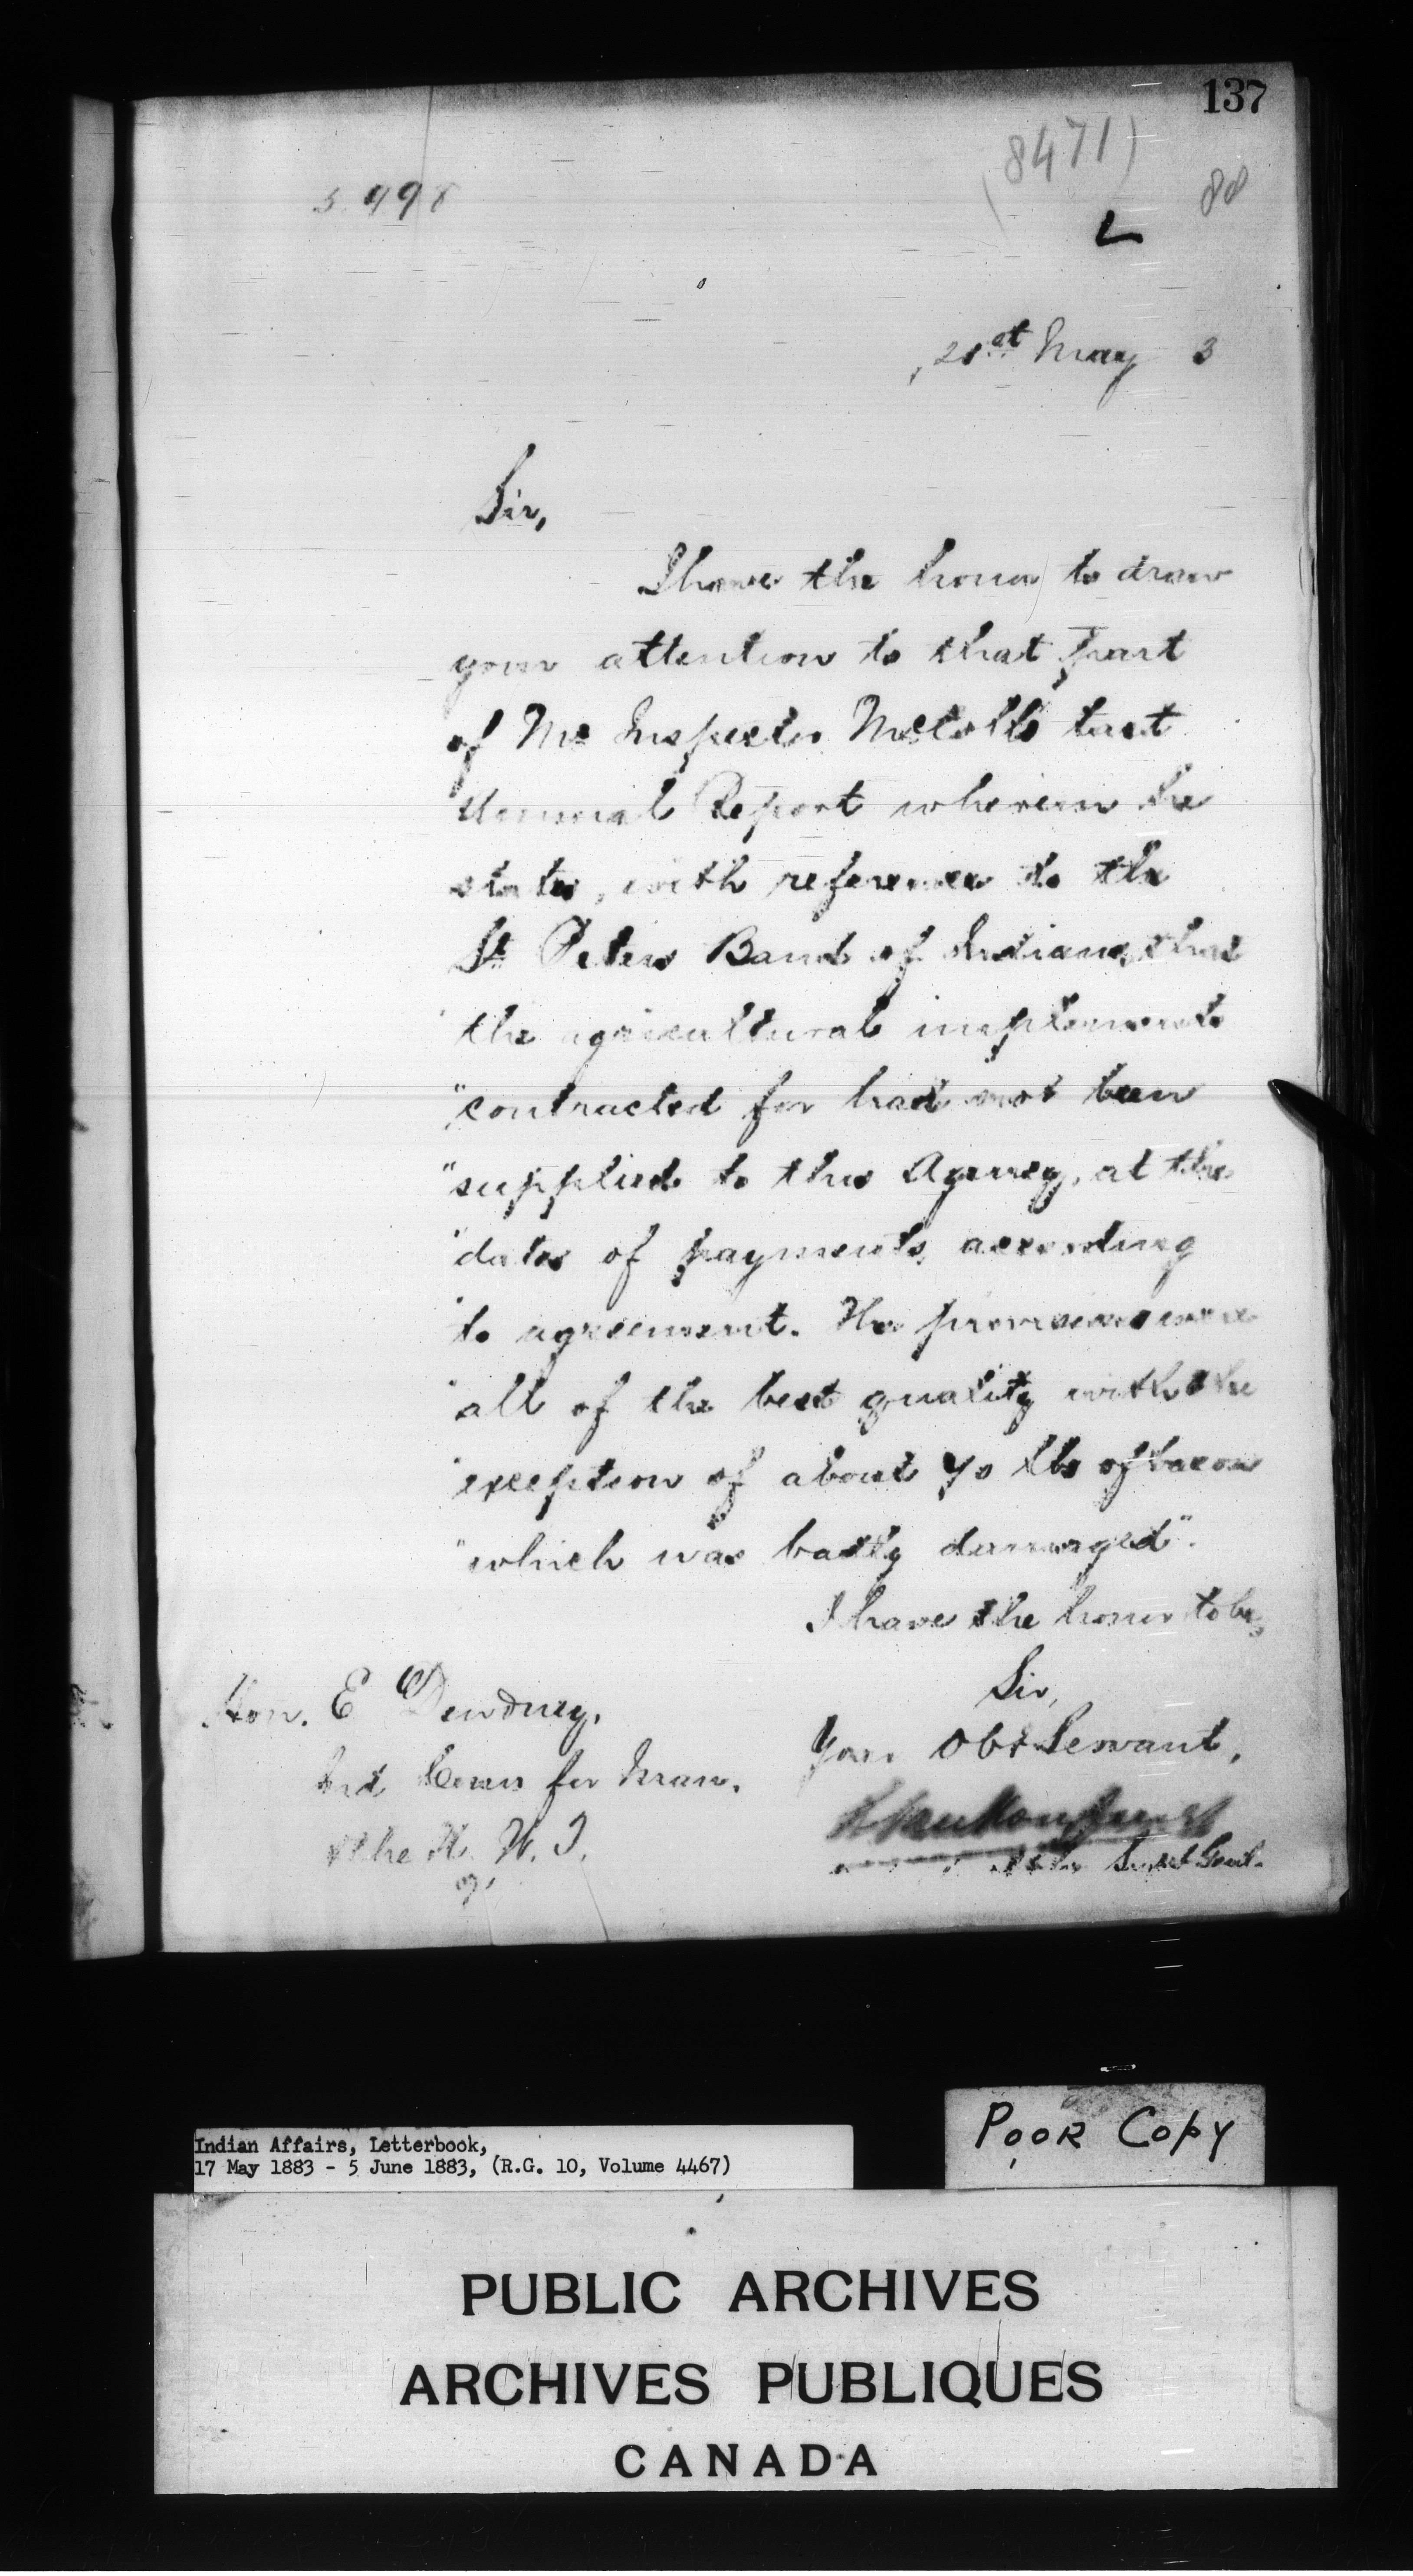 137
(8471)
88
5498
L
21st May 3
Sir,
I have the honor to draw
your attention to that part
of Mr Inspector McColl's last
Annual Report wherein he
states, with reference to the
St Peters Band of Indians, that
"the agricultural implements
"contracted for had not been
"supplied to this Agency, at the
"dates of payments, according
"to agreement. The provisions were
"all of the best quality with the
"exception of about 70 lbs of bacon
"which was badly damaged".
I have the honor to be,
Sir,
Your Obt Servant,
Supt Genl.
Hon. E Dewdney,
Ind Comr for Man.
& the N. W. T.
Indian Affairs, Letterbook,
17 May 1883 - 5 June 1883, (R.G. 10, Volume 4467)
POOR COPY
PUBLIC ARCHIVES
ARCHIVES PUBLIQUES
CANADA